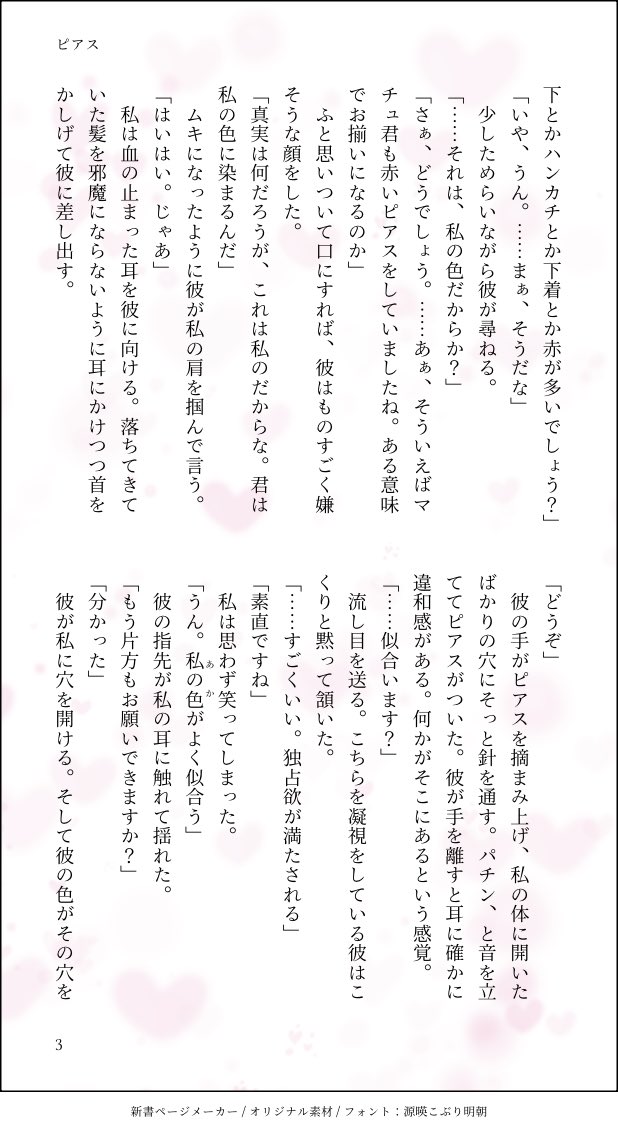 ピアス
下とかハンカチとか下着とか赤が多いでしょう?」
「いや、うん。……まぁ、そうだな」
少しためらいながら彼が尋ねる。
「……それは、私の色だからか?」
「さぁ、どうでしょう。……あぁ、そういえばマ
チュ君も赤いピアスをしていましたね。ある意味
でお揃いになるのか」
ふと思いついて口にすれば、彼はものすごく嫌
そうな顔をした。
「真実は何だろうが、これは私のだからな。君は
私の色に染まるんだ」
ムキになったように彼が私の肩を掴んで言う。
「はいはい。じゃあ」
私は血の止まった耳を彼に向ける。落ちてきて
いた髪を邪魔にならないように耳にかけつつ首を
かしげて彼に差し出す。
「どうぞ」
彼の手がピアスを摘まみ上げ、私の体に開いた
ばかりの穴にそっと針を通す。パチン、と音を立
ててピアスがついた。彼が手を離すと耳に確かに
違和感がある。何かがそこにあるという感覚。
「……似合います?」
流し目を送る。こちらを凝視をしている彼はこ
くりと黙って頷いた。
「……すごくいい。独占欲が満たされる」
「素直ですね」
私は思わず笑ってしまった。
「うん。私の色がよく似合う」
あか
彼の指先が私の耳に触れて揺れた。
「もう片方もお願いできますか?」
「分かった」
彼が私に穴を開ける。そして彼の色がその穴を
3
新書ページメーカー / オリジナル素材 / フォント:源暎こぶり明朝